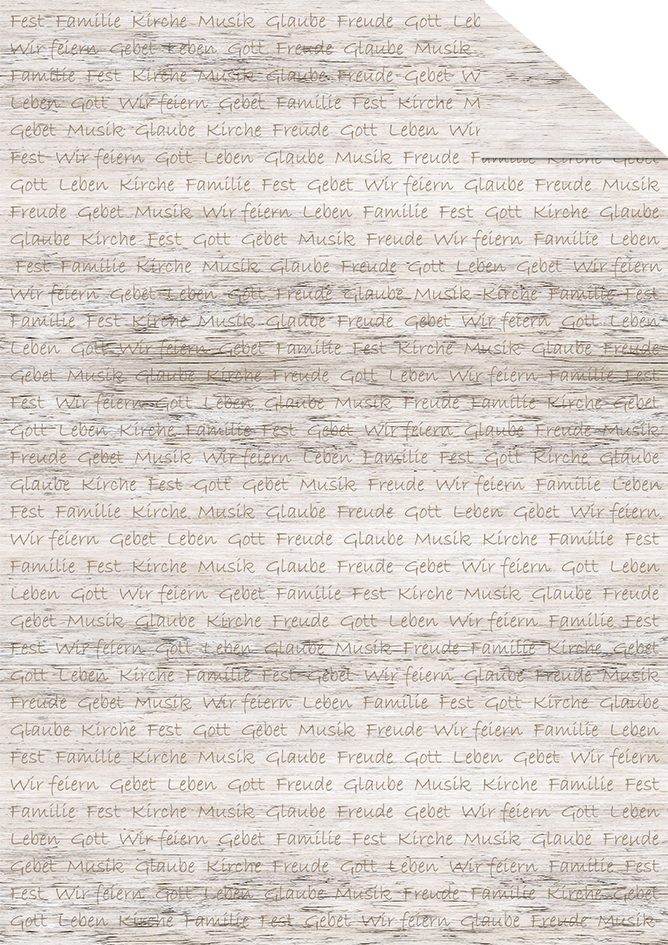 Fest Familie Kirche Musik Glaube Freude Gott Leb
Wir feiern Gebet Leben Gott Freude Glaube Musik
Familie Fest Kirche Musik Glaube Freude Gebet W
Leben Gott Wir feiern Gebet Familie Fest Kirche M
Gebet Musik Glaube Kirche Freude Gott Leben Wir
Fest Wir feiern Gott Leben Glaube Musik Freude Familie Kirche Gebet
Gott Leben Kirche Familie Fest Gebet Wir feiern Glaube Freude Musik
Freude Gebet Musik Wir feiern Leben Familie Fest Gott Kirche Glaube
Glaube Kirche Fest Gott Gebet Musik Freude Wir feiern Familie Leben
Fest Familie Kirche Musik Glaube Freude Gott Leben Gebet Wir feiern
Wir feiern Gebet Leben Gott Freude Glaube Musik Kirche Familie Fest
Familie Fest Kirche Musik Glaube Freude Gebet Wir feiern Gott Leben
Leben Gott Wir feiern Gebet Familie Fest Kirche Musik Glaube Freude
Gebet Musik Glaube Kirche Freude Gott Leben Wir feiern Familie Fest
Fest Wir feiern Gott Leben Glaube Musik Freude Familie Kirche Gebet
Gott Leben Kirche Familie Fest Gebet Wir feiern Glaube Freude Musik
Freude Gebet Musik Wir feiern Leben Familie Fest Gott Kirche Glaube
Glaube Kirche Fest Gott Gebet Musik Freude Wir feiern Familie Leben
Fest Familie Kirche Musik Glaube Freude Gott Leben Gebet Wir feiern
Wir feiern Gebet Leben Gott Freude Glaube Musik Kirche Familie Fest
Familie Fest Kirche Musik Glaube Freude Gebet Wir feiern Gott Leben
Leben Gott Wir feiern Gebet Familie Fest Kirche Musik Glaube Freude
Gebet Musik Glaube Kirche Freude Gott Leben Wir feiern Familie Fest
Fest Wir feiern Gott Leben Glaube Musik Freude Familie Kirche Gebet
Gott Leben Kirche Familie Fest Gebet Wir feiern Glaube Freude Musik
Freude Gebet Musik Wir feiern Leben Familie Fest Gott Kirche Glaube
Glaube Kirche Fest Gott Gebet Musik Freude Wir feiern Familie Leben
Fest Familie Kirche Musik Glaube Freude Gott Leben Gebet Wir feiern
Wir feiern Gebet Leben Gott Freude Glaube Musik Kirche Familie Fest
Familie Fest Kirche Musik Glaube Freude Gebet Wir feiern Gott Leben
Leben Gott Wir feiern Gebet Familie Fest Kirche Musik Glaube Freude
Gebet Musik Glaube Kirche Freude Gott Leben Wir feiern Familie Fest
Fest Wir feiern Gott Leben Glaube Musik Freude Familie Kirche Gebet
Gott Leben Kirche Familie Fest Gebet Wir feiern Glaube Freude Musik